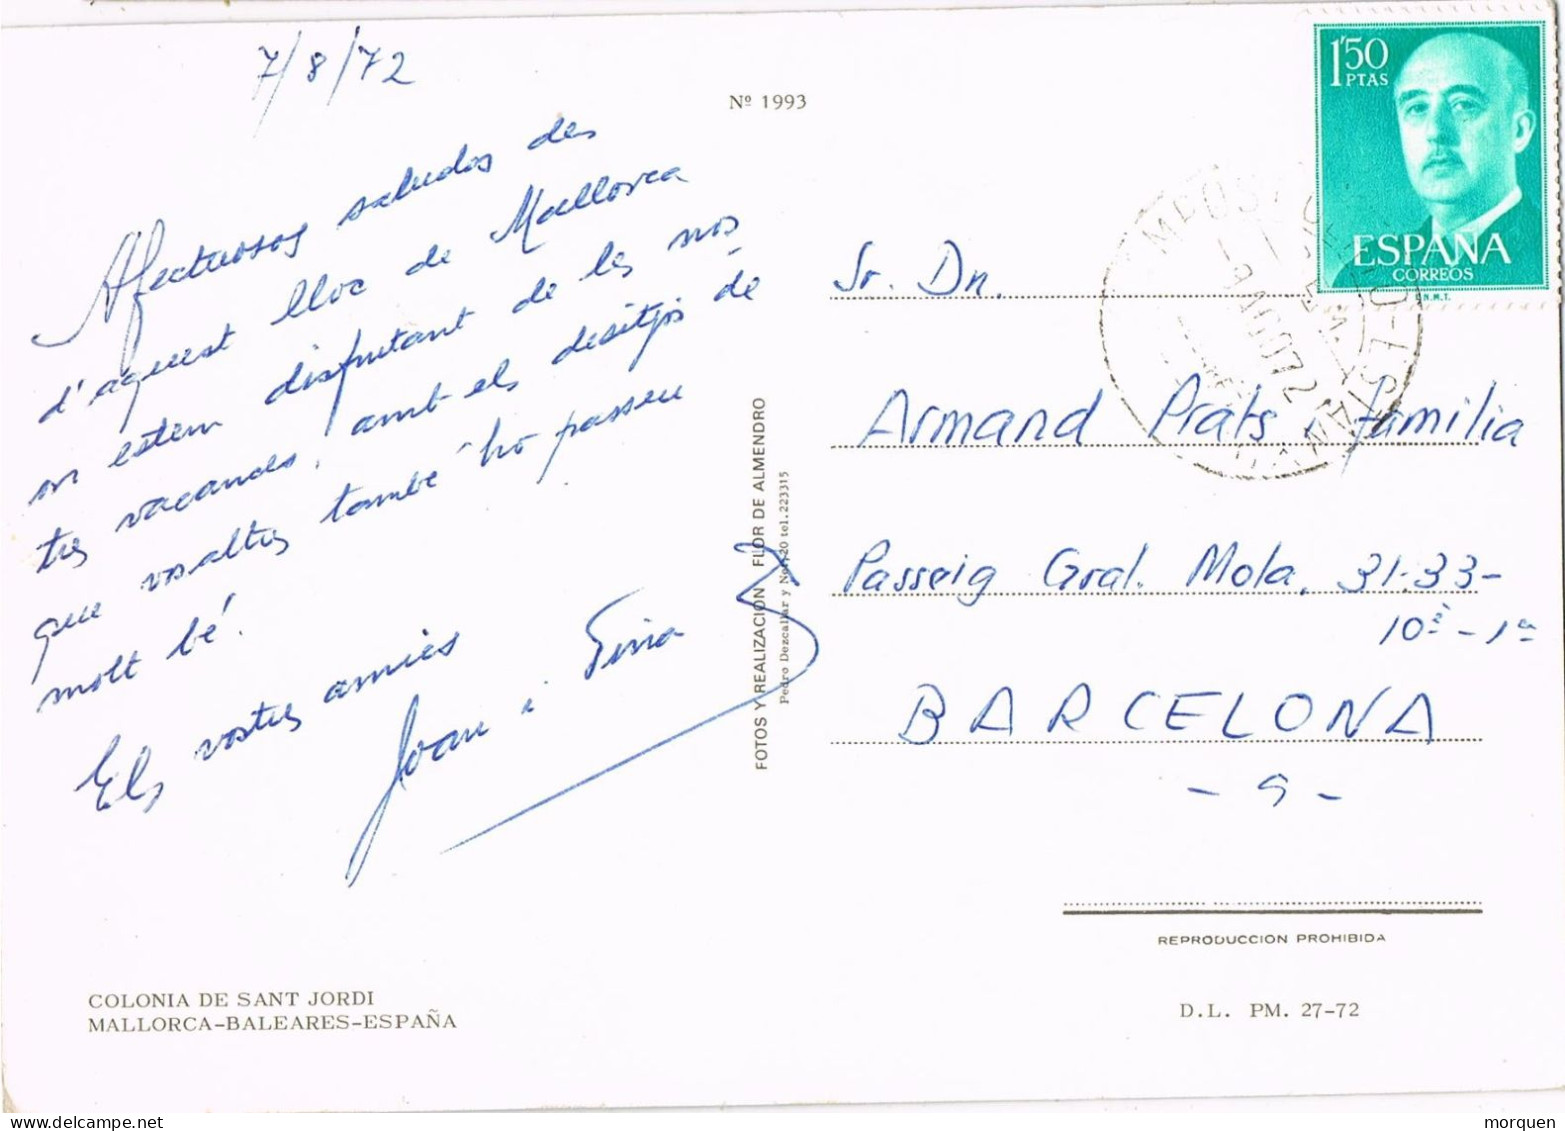 7/8/72
Nº 1993
Afectuosos saludos des
d'aquest lloc de Mallorca
on estem disfrutant de les nos-
tres vacances, amb els desitjos de
que vosaltres també ho passeu
molt bé.
Els vostres amics
Joan i Tina
COLONIA DE SANT JORDI
MALLORCA-BALEARES-ESPAÑA
FOTOS Y REALIZACION FLOR DE ALMENDRO
Pedro Dezcallar y Net, 20 tel. 223315
1'50
PTAS
ESPAÑA
CORREOS
F.N.M.T.
9 AGO 72
Sr. Dn.
Armand Prats i família
Passeig Gral. Mola, 31-33-
10è-1ª
BARCELONA
- 9 -
REPRODUCCION PROHIBIDA
D.L. PM. 27-72
morquen